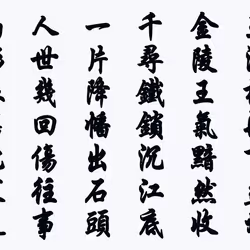 金陵王氣黯然收
千尋鐵鎖沉江底
一片降幡出石頭
人世幾回傷往事